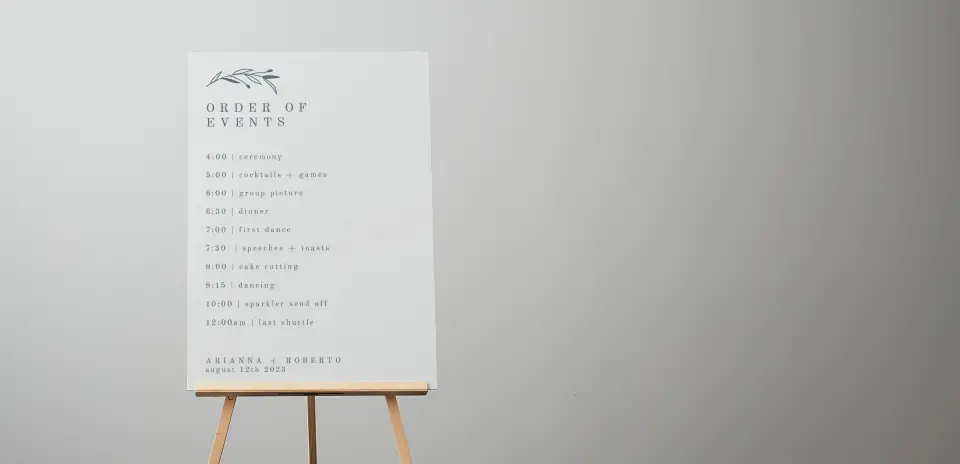 ORDER OF
EVENTS
4:00 | ceremony
5:00 | cocktails + games
6:00 | group picture
6:30 | dinner
7:00 | first dance
7:30 | speeches + toasts
8:00 | cake cutting
8:15 | dancing
10:00 | sparkler send off
12:00am | last shuttle
ARIANNA + ROBERTO
august 12th 2023